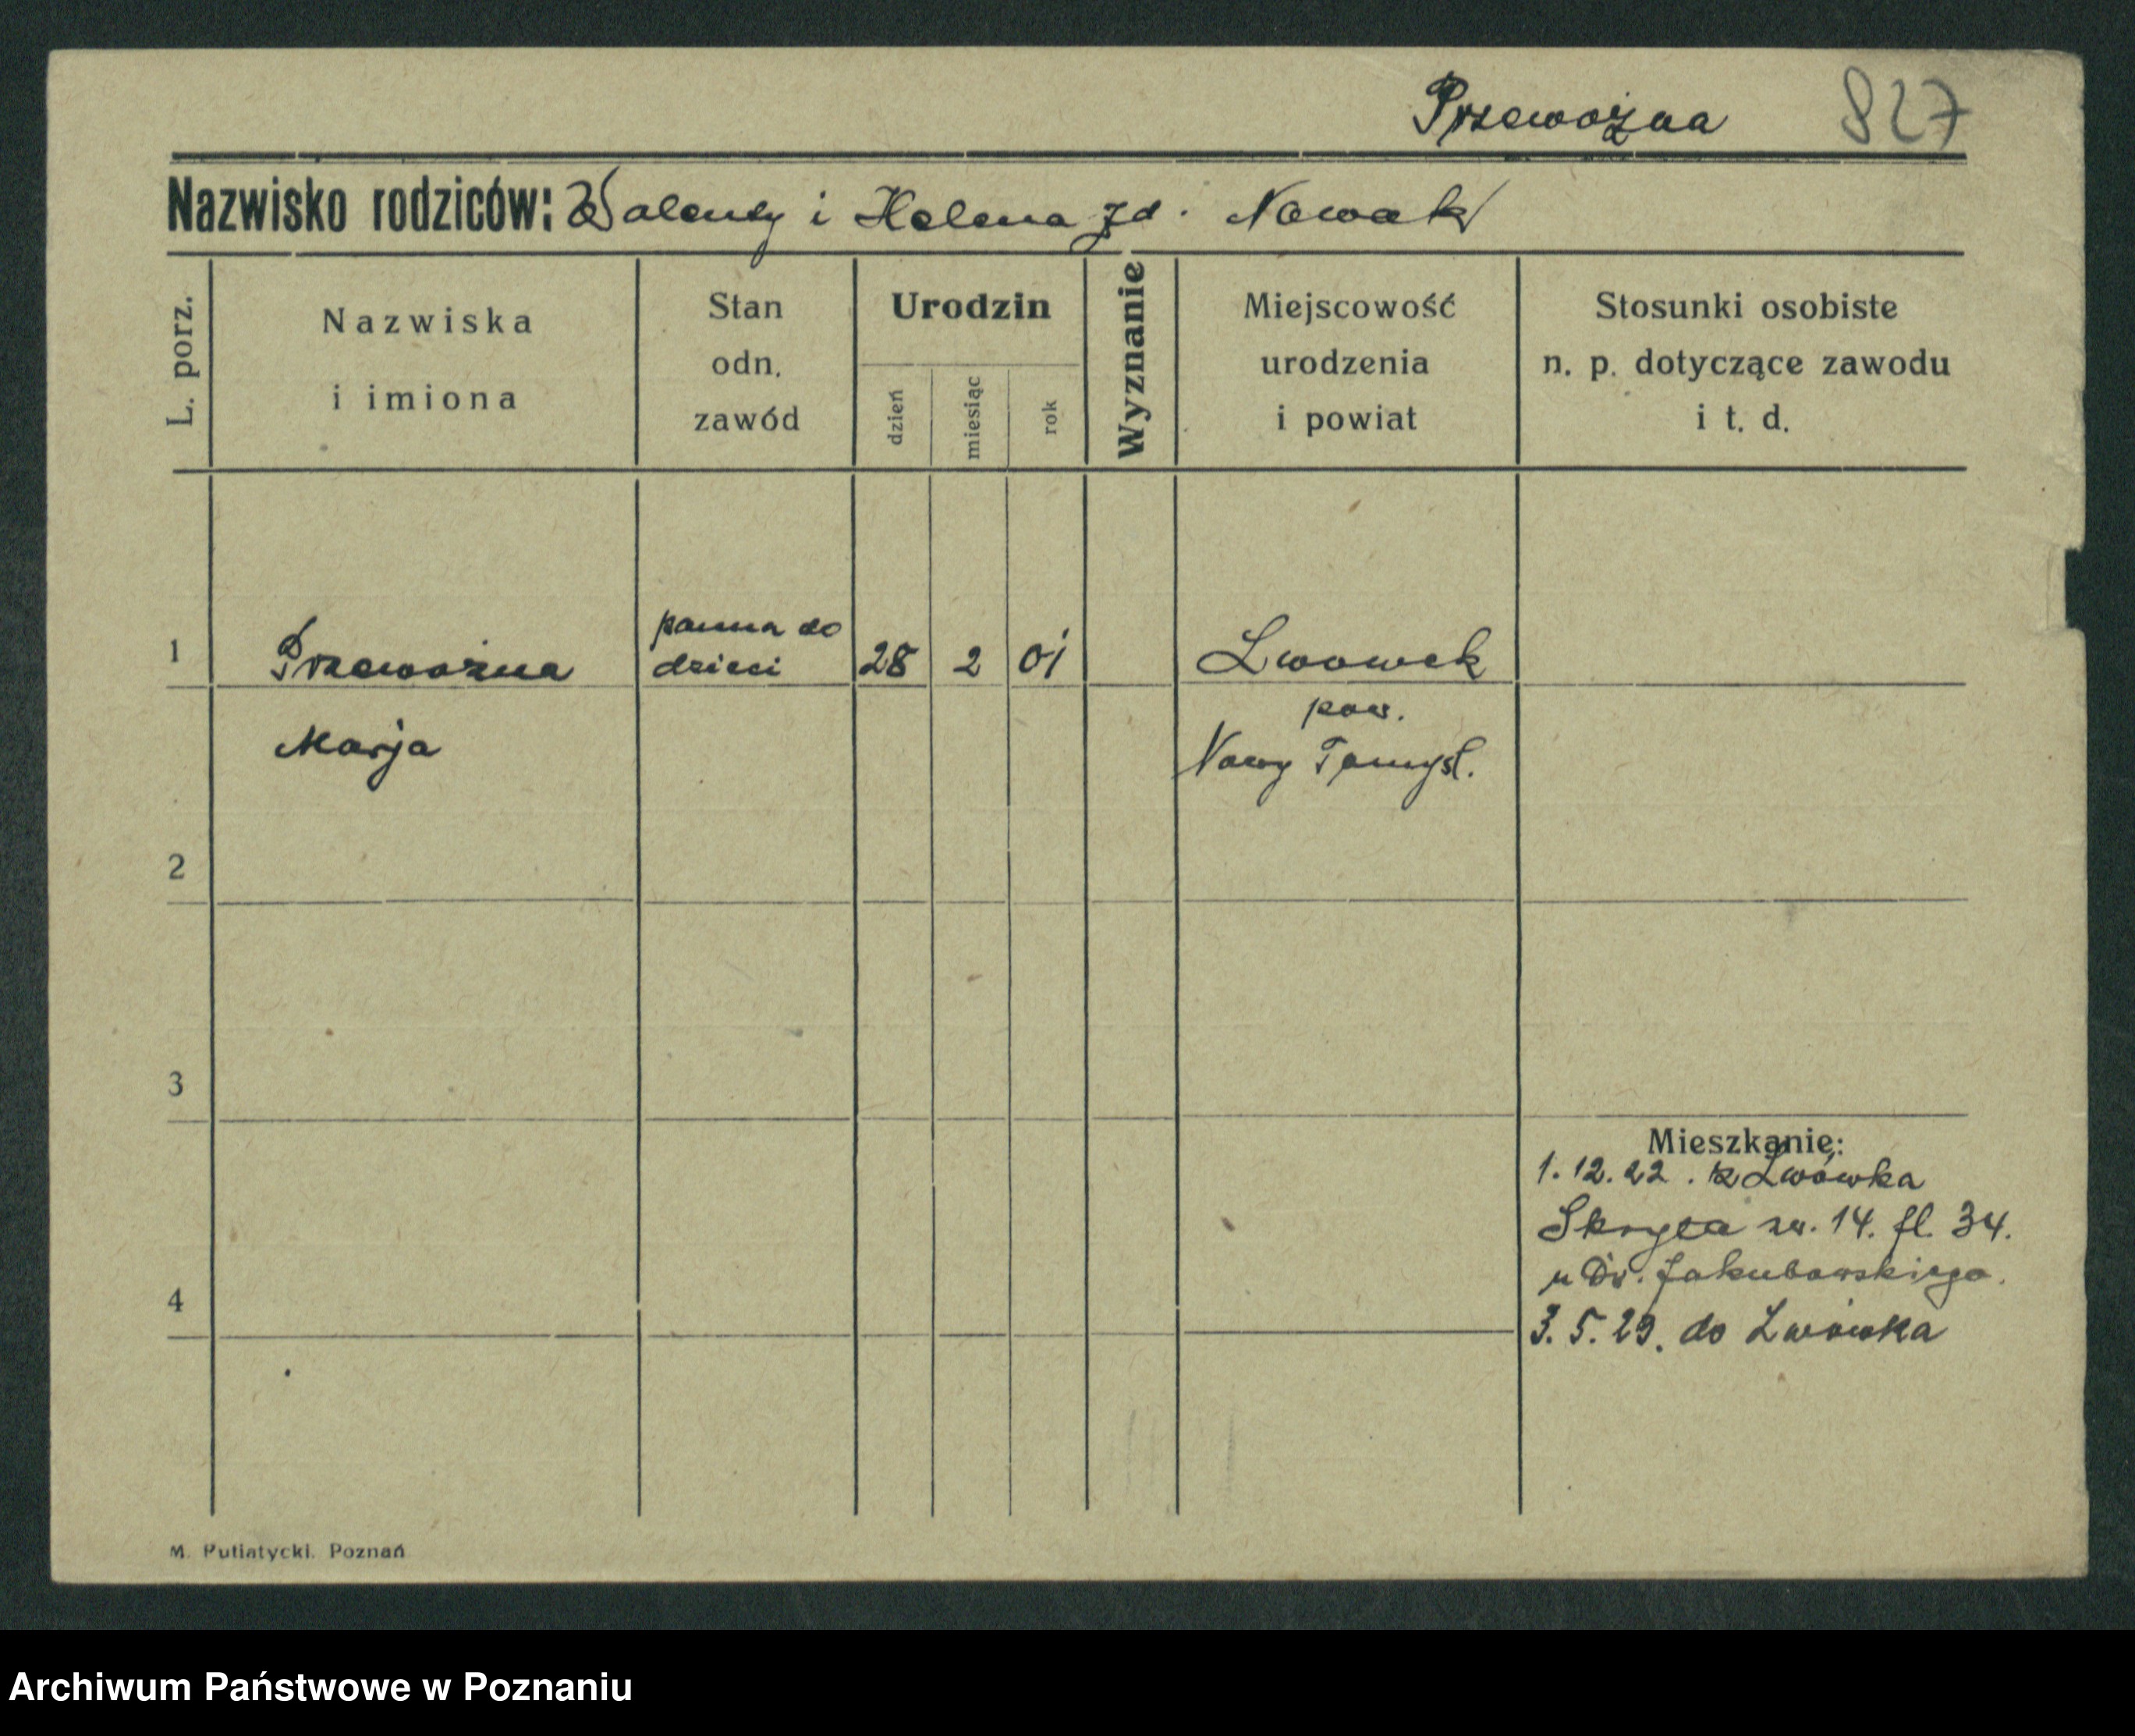 Przewoźna 827
Nazwisko rodziców: Walenty i Helena zd. Nowak
L. porz.
Nazwiska
i imiona
Stan
odn.
zawód
Urodzin
dzień
miesiąc
rok
Wyznanie
Miejscowość
urodzenia
i powiat
Stosunki osobiste
n. p. dotyczące zawodu
i t. d.
1 Przewoźna panna do dzieci 28 2 01 Lwowek
Marja
pow.
Nowy Tomyśl.
2
3
4
Mieszkanie:
1. 12. 22. z Lwówka
14. fl. 34.
u Dr. Jakubowskiego.
3. 5. 29. do Lwówka
M. Putiatycki. Poznań
Archiwum Państwowe w Poznaniu